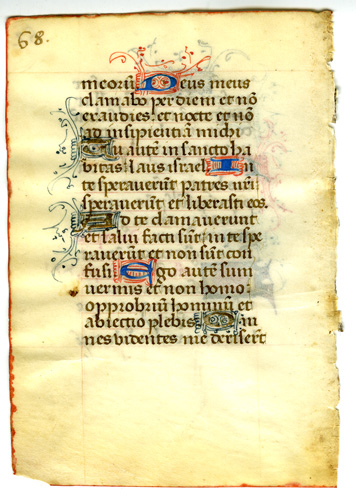 68.
meoru͂ Deus meus
clamabo per diem et nō
exaudies: et nocte et nō
ad insipientiā michi
Tu autē in sancto ha
bitas laus israel In
te speraverūt patres nr̄i
speraverūt et liberasti eos.
Ad te clamaverunt
et salvi facti sūt: in te spe
raverūt et non sūt con
fusi Ego autē sum
vermis et non homo:
opprobriū hominū et
abiectio plebis Om
nes videntes me deriserūt